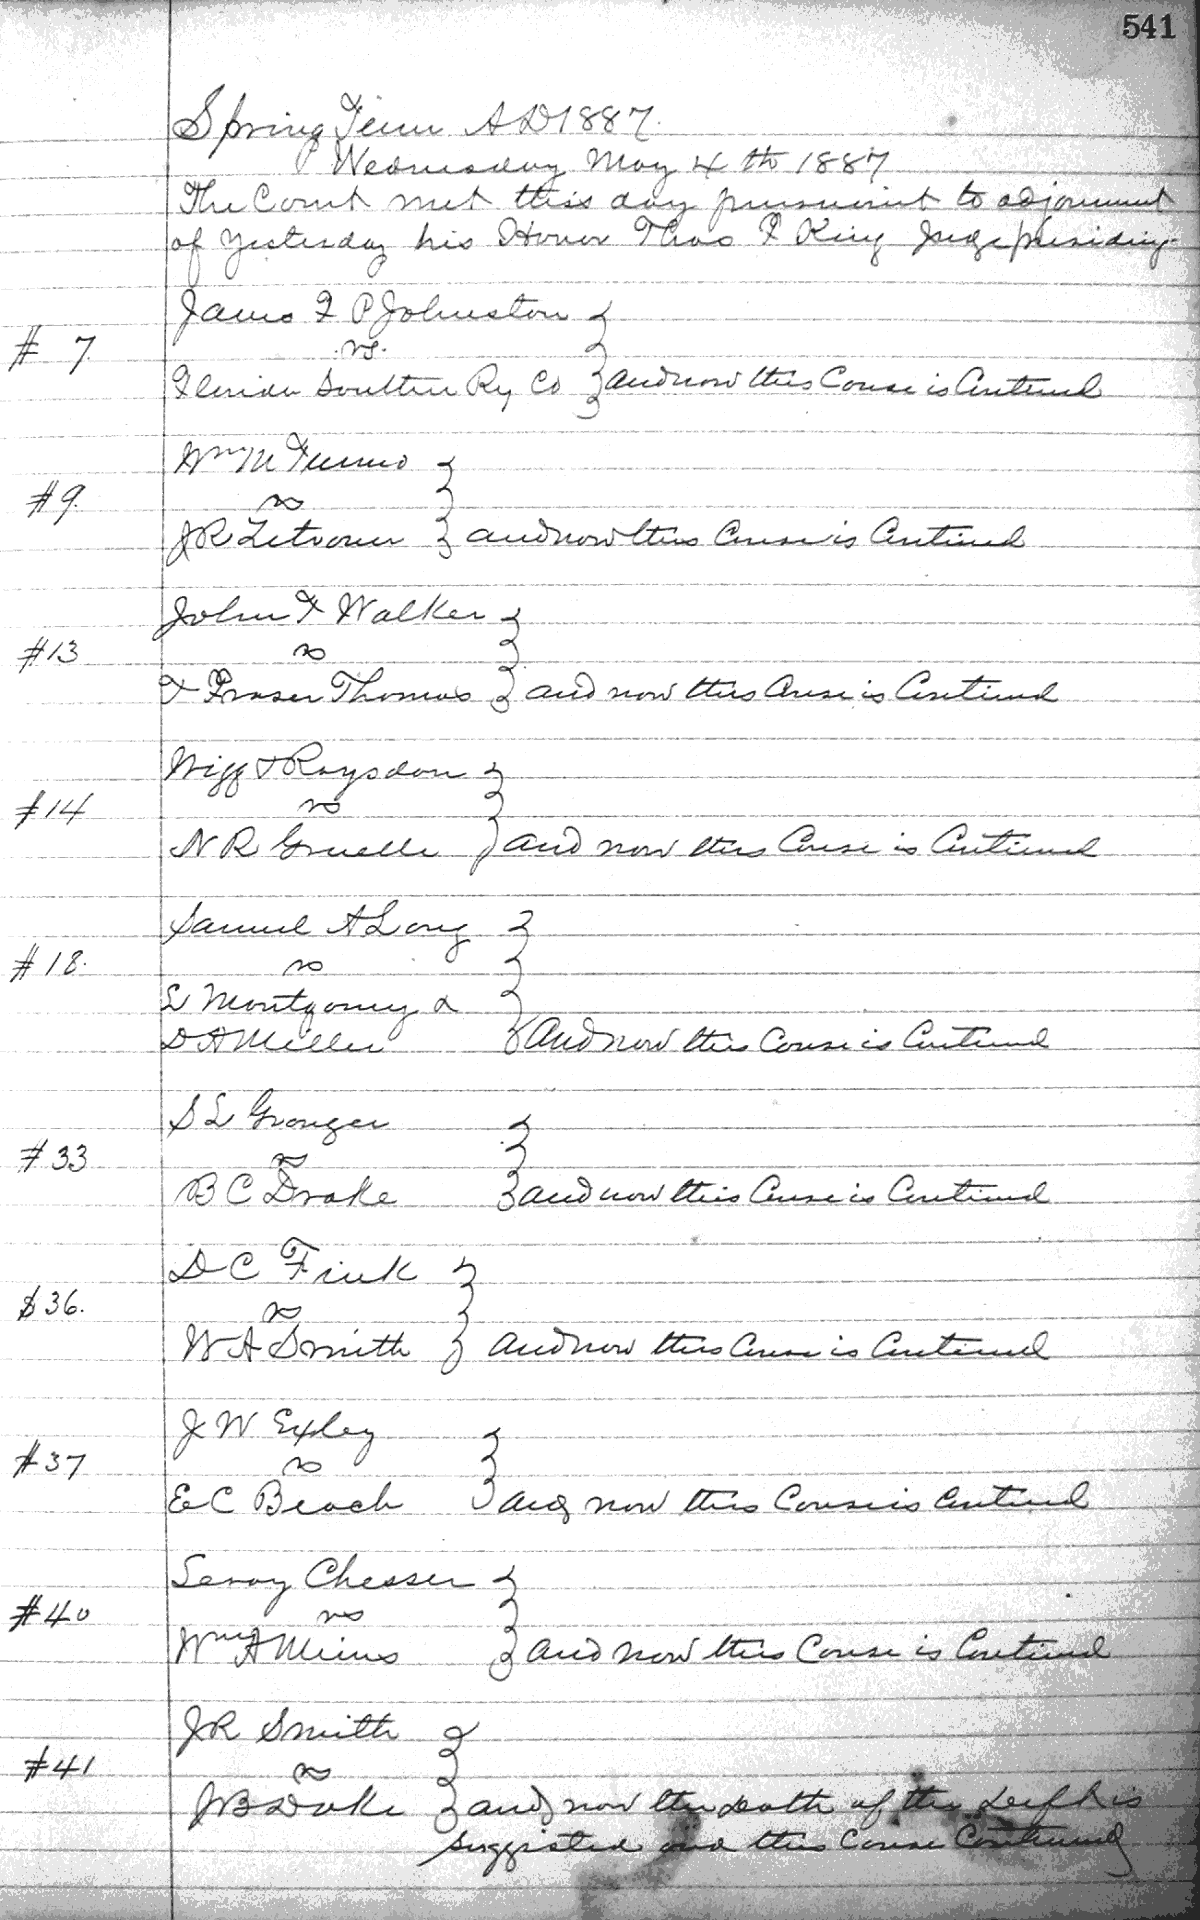 541
Spring Term AD 1887.
Wednesday May 4th 1887
The Court met this day pursuant to adjournment
of yesterday his Honor Thos F King Judge presiding
James F P Johnston
# 7 vs.
Florida Southern Ry Co and now this Cause is Continued
Wm M
#9. vs
J R and now this Cause is Continued
John F Walker
#13 vs
F Fraser Thomas and now this Cause is Continued
Wigg & Roysdon
#14 vs
N R Gruelle and now this Cause is Continued
Samuel A Long
#18. vs
L Montgomery &
D A Miller and now this Cause is Continued
S L Granger
#33 vs
B C Drake and now this Cause is Continued
D C Fink
$36. vs
W A Smith and now this Cause is Continued
J W Exley
#37 vs
E C Beach and now this Cause is Continued
Leroy Chesser
#40 vs
Wm A Mims and now this Cause is Continued
J R Smith
#41 vs
J B Duke and now the death of the Deft is
suggested and this Cause Continued